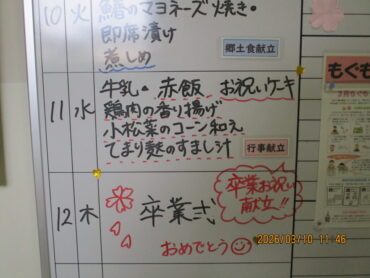 10 火 鰆のマヨネーズ焼き・
即席漬け
煮しめ
郷土食献立
11 水 牛乳・赤飯 お祝いケーキ
鶏肉の香り揚げ
小松菜のコーン和え
てまり麩のすまし汁
行事献立
卒業お祝い
献立!!
12 木 卒業式
おめでとう
もぐも
2026/03/10 11:46